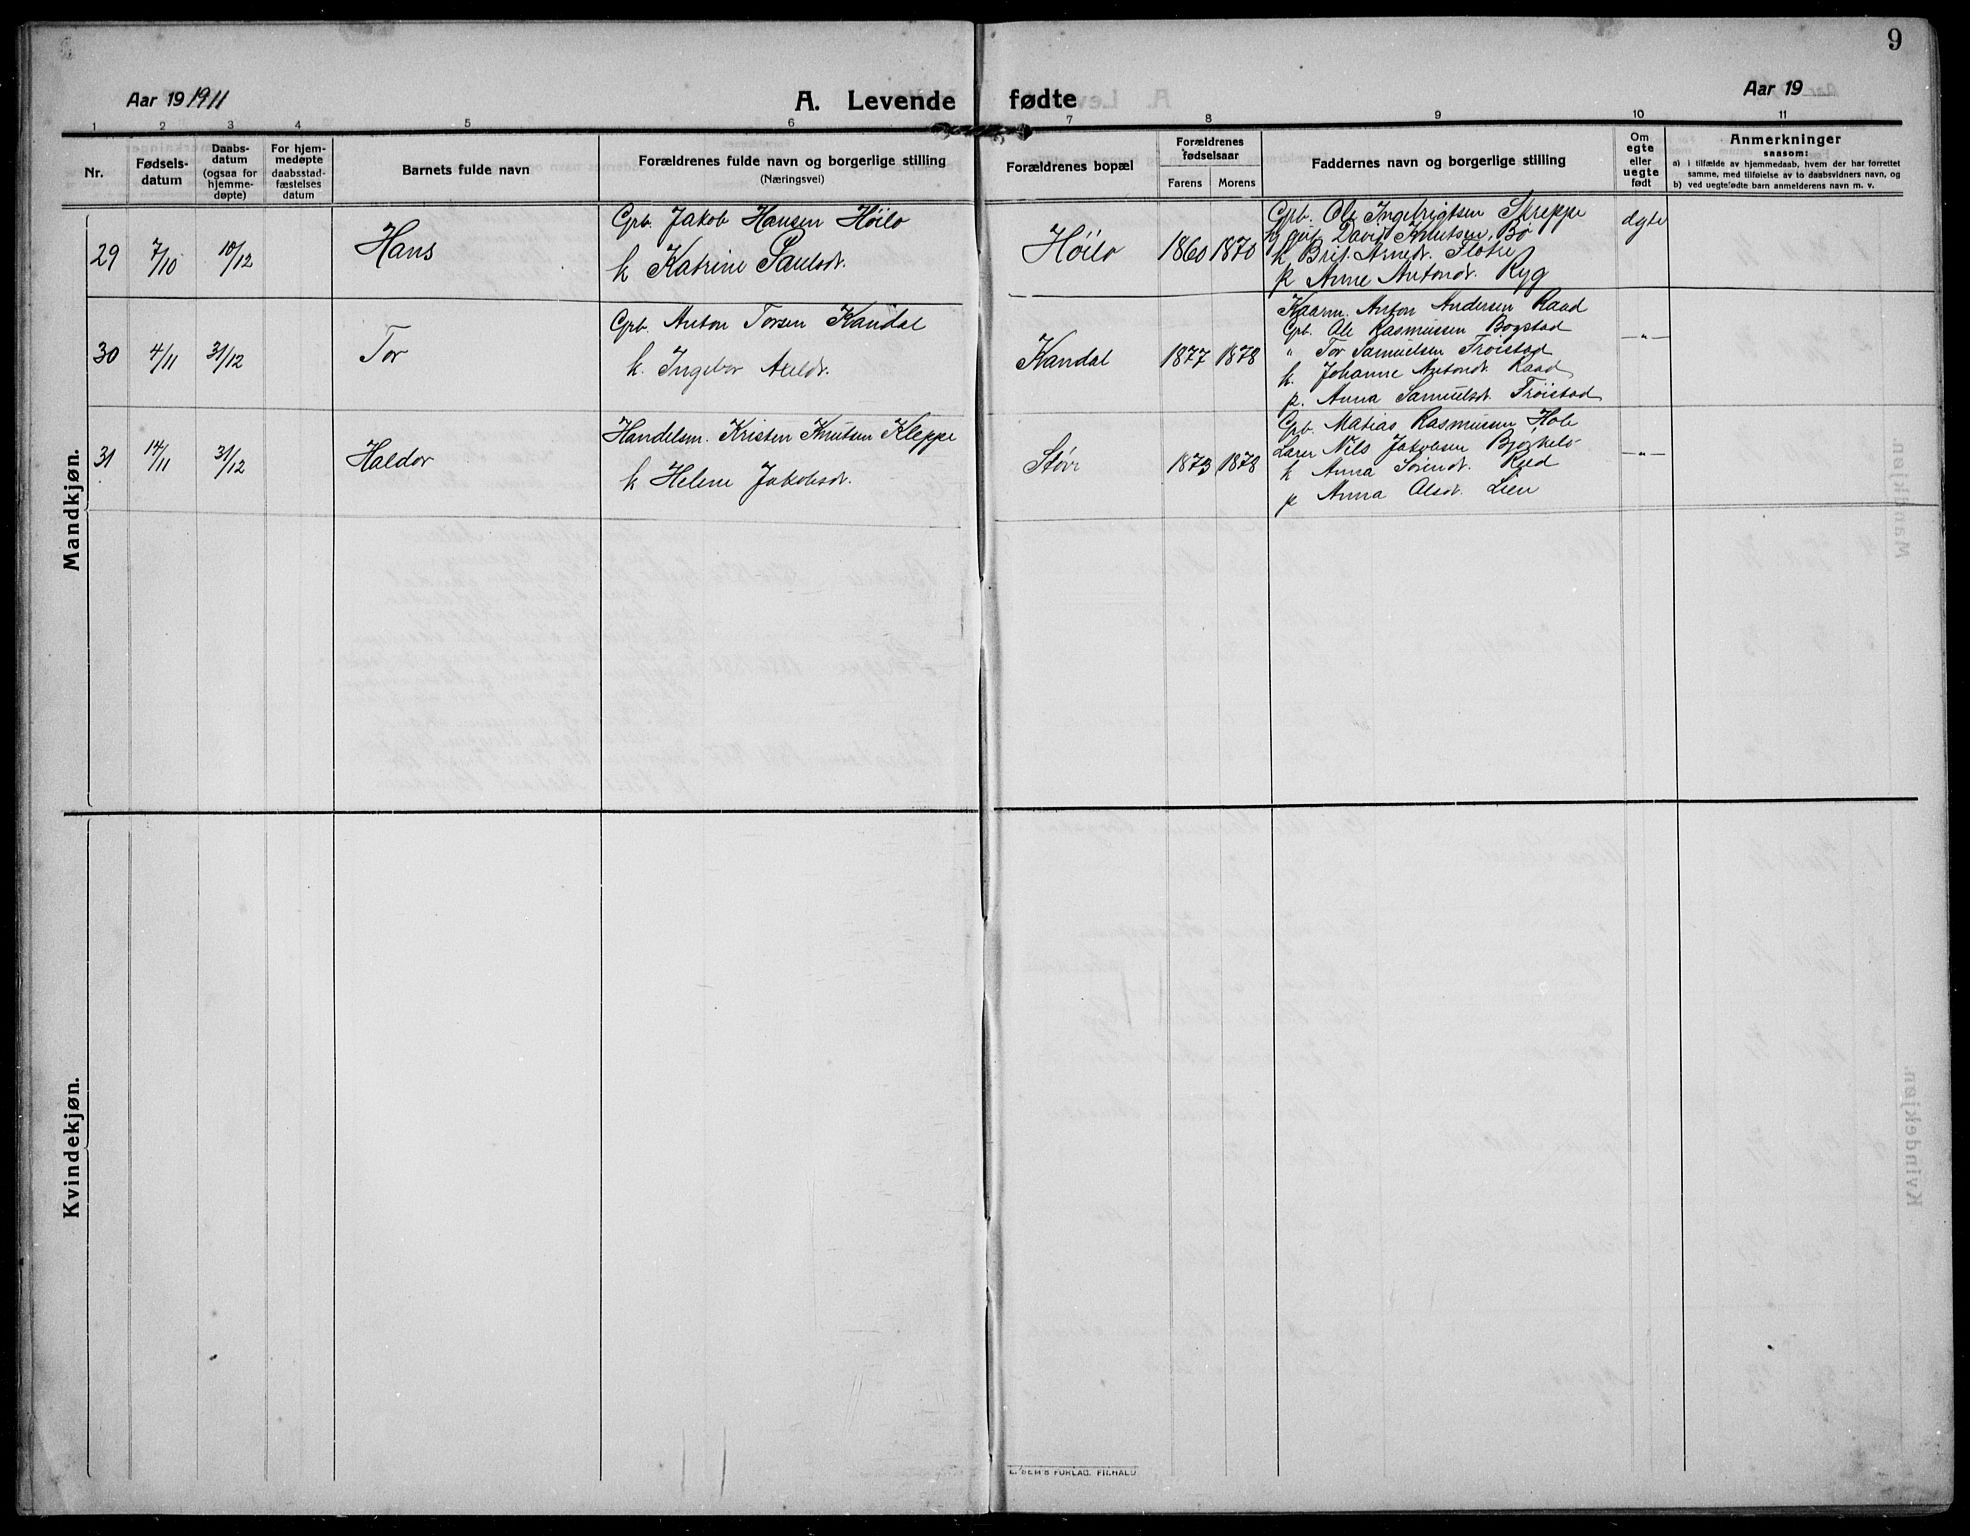 9
Aar 19 1911
A. Levende fødte
Aar 19
1 2 3 4 5 6 7 8 9 10 11
Nr.
Fødsels-
datum
Daabs-
datum
(ogsaa for
hjemme-
døpte)
For hjem-
medøpte
daabsstad-
fæstelses
datum
Barnets fulde navn
Forældrenes fulde navn og borgerlige stilling
(Næringsvei)
Forældrenes bopæl
Forældrenes
fødselsaar
Farens Morens
Faddernes navn og borgerlige stilling
Om
egte
eller
uegte
født
Anmerkninger
saasom:
a) i tilfælde av hjemmedaab, hvem der har forrettet
samme, med tilføielse av to daabsvidners navn, og
b) ved uegtefødte barn anmelderens navn m. v.
Mandkjøn.
29 7/10 10/12 Hans
Grb. Jakob Hansen Höilo
k Katrine Paulsdt.
Höilo 1860 1870
Grb. Ole Ingebrigtsen Skreppe
David Knutsen Bö
k Brit Arnedt. Flotre
p Anne Antondt. Ryg
ægte
30 4/11 31/12 Tor
Grb. Anton Torsen Kandal
k. Ingebor Axeldt.
Kandal 1877 1878
Kaarm. Anton Andersen Raad
Grb. Ole Rasmussen Bogstad
" Tor Samuelsen Tröistad
k. Johanne Antondt. Raad
p. Anna Samuelsdt. Tröistad
—"—
31 14/11 31/12 Haldor
Handelsm. Kristen Knutsen Kleppe
k Helene Jakobsdt.
1873 1878
Grb. Matias Rasmussen Hole
Lærer Nils Jakobsen Bjørkelo
k Anna Sörendt. Reed
p Anna Olsdt. Lien
—"—
Kvindekjøn.
E. SEM'S FORLAG, FR.HALD